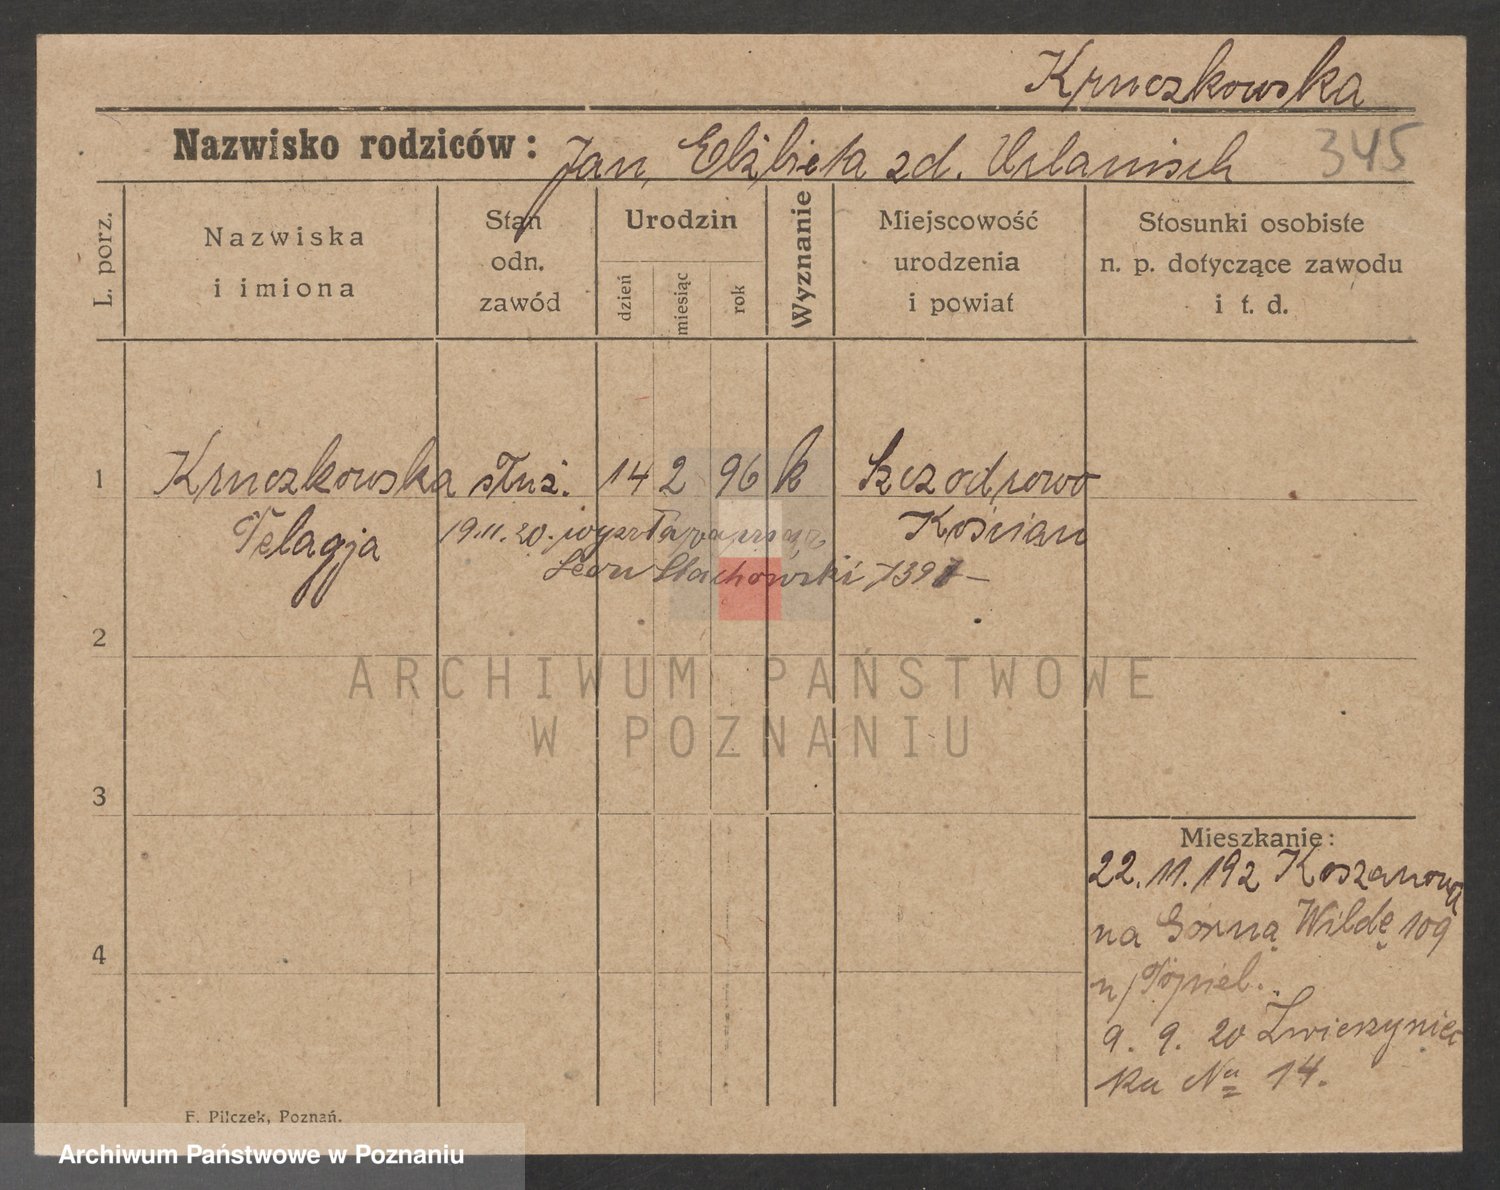 Kruczkowska
Nazwisko rodziców: Jan, Elżbieta zd. Urlanisch
345
L. porz.
Nazwiska
i imiona
Stan
odn.
zawód
Urodzin
dzień
miesiąc
rok
Wyznanie
Miejscowość
urodzenia
i powiat
Stosunki osobiste
n. p. dotyczące zawodu
i t. d.
1 Kruczkowska służ. 14 2 96 k Szczodrowo
Pelagja Kościan
19.11.20. wyszła
Leon Stachowski 7391-
2
ARCHIWUM PAŃSTWOWE
W POZNANIU
3
Mieszkanie:
22. 11. 192 Koszanowa
na Górną Wildę 109
n/Töpiel.
4
9. 9. 20 Zwierzyniec
ka No 14.
F. Pilczek, Poznań.
Archiwum Państwowe w Poznaniu